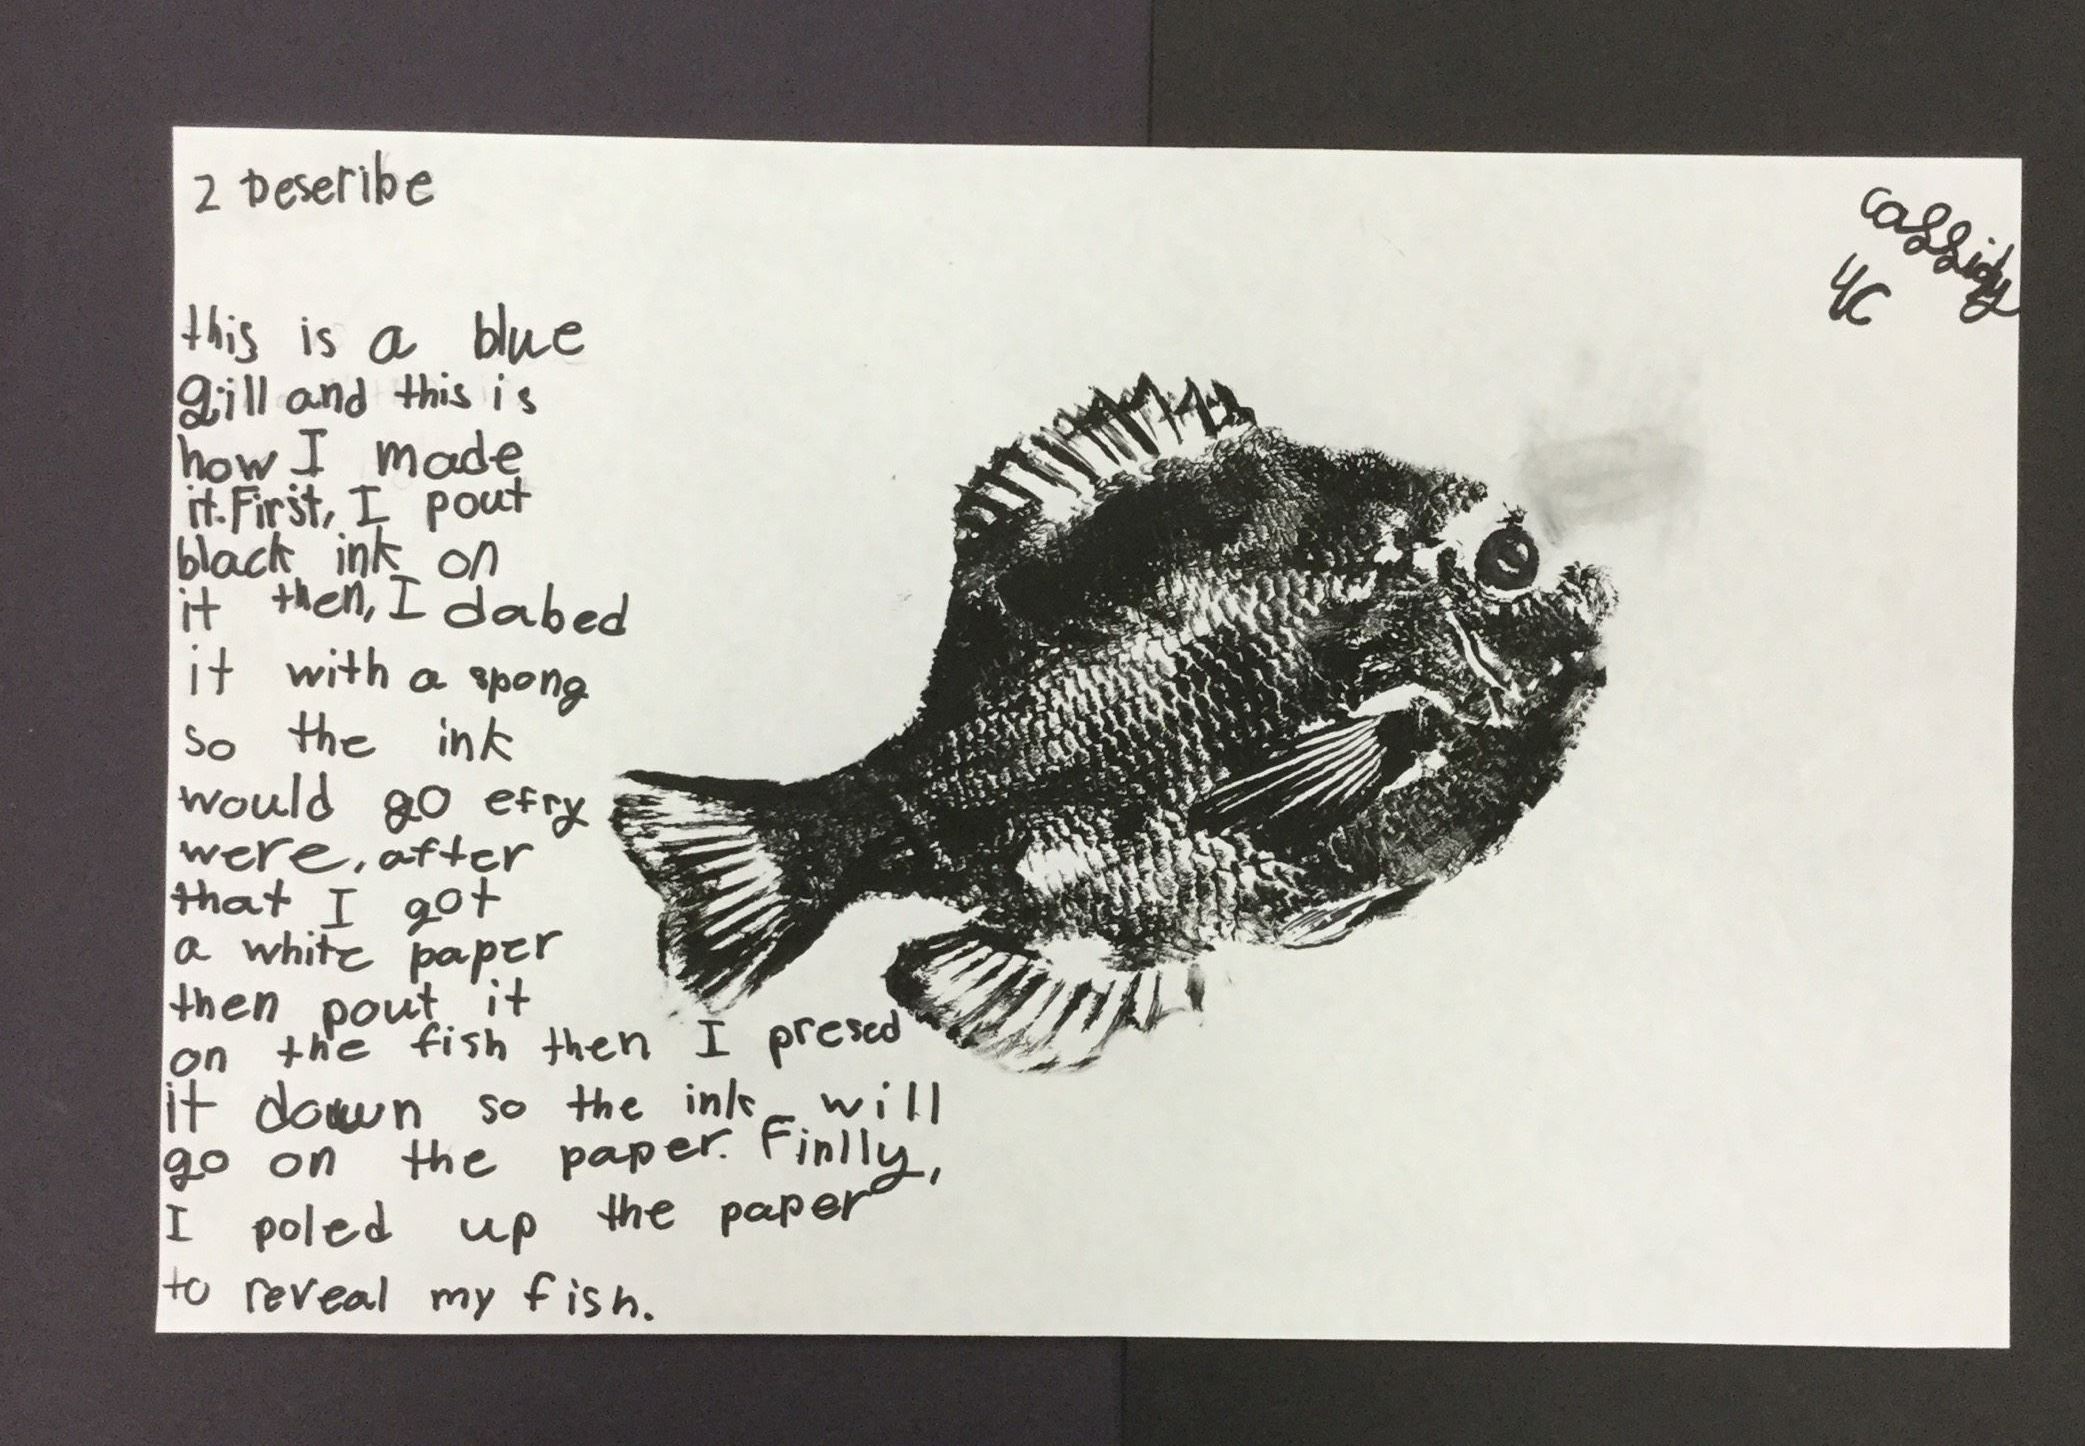 2 Describe
cassidy
4C
this is a blue
gill and this is
how I made
it. First, I pout
black ink on
it then, I dabed
it with a spong
so the ink
would go efry
were, after
that I got
a white paper
then pout it
on the fish then I presed
it down so the ink will
go on the paper. Finlly,
I poled up the paper
to reveal my fish.